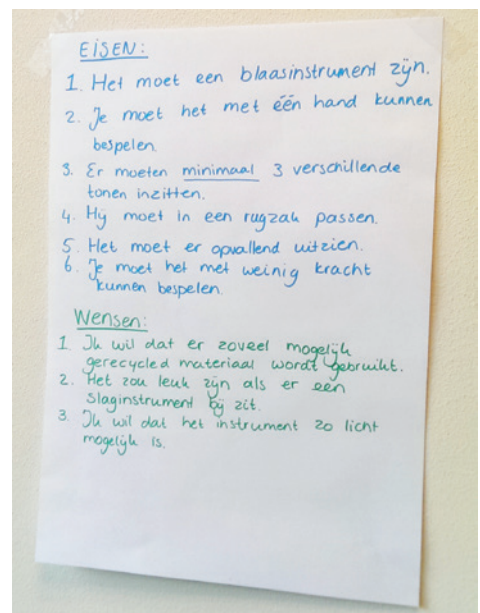 EISEN:
1. Het moet een blaasinstrument zijn.
2. Je moet het met één hand kunnen
bespelen.
3. Er moeten minimaal 3 verschillende
tonen inzitten.
4. Hij moet in een rugzak passen.
5. Het moet er opvallend uitzien.
6. Je moet het met weinig kracht
kunnen bespelen.
Wensen:
1. Ik wil dat er zoveel mogelijk
gerecycled materiaal wordt gebruikt.
2. Het zou leuk zijn als er een
slaginstrument bij zit.
3. Ik wil dat het instrument zo licht
mogelijk is.